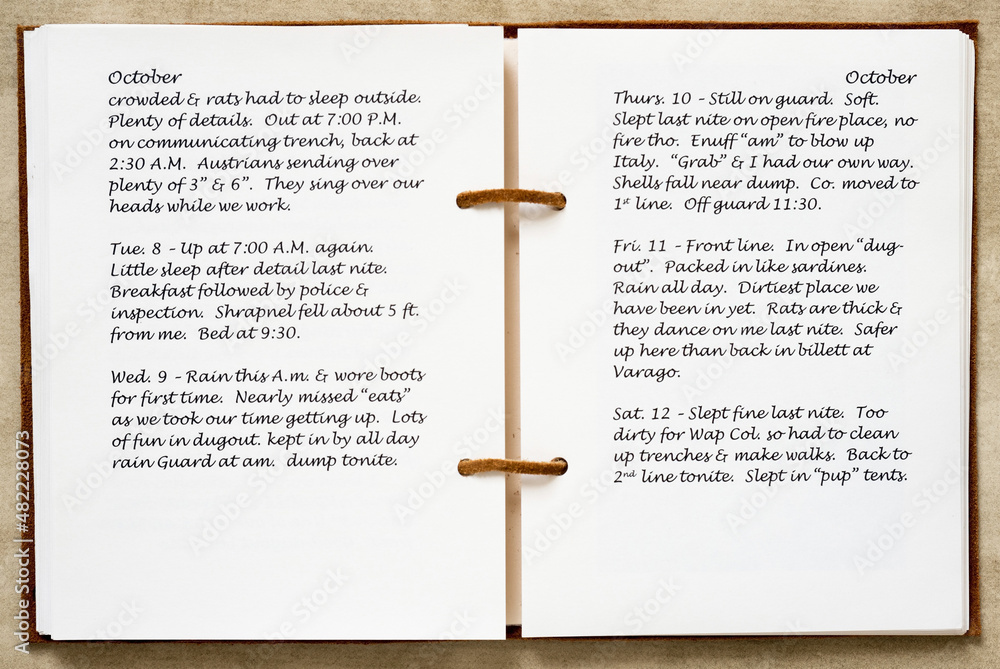 October
crowded & rats had to sleep outside.
Plenty of details. Out at 7:00 P.M.
on communicating trench, back at
2:30 A.M. Austrians sending over
plenty of 3” & 6”. They sing over our
heads while we work.
Tue. 8 – Up at 7:00 A.M. again.
Little sleep after detail last nite.
Breakfast followed by police &
inspection. Shrapnel fell about 5 ft.
from me. Bed at 9:30.
Wed. 9 – Rain this A.m. & wore boots
for first time. Nearly missed “eats”
as we took our time getting up. Lots
of fun in dugout. kept in by all day
rain Guard at am. dump tonite.
October
Thurs. 10 – Still on guard. Soft.
Slept last nite on open fire place, no
fire tho. Enuff “am” to blow up
Italy. “Grab” & I had our own way.
Shells fall near dump. Co. moved to
1st line. Off guard 11:30.
Fri. 11 – Front line. In open “dug-
out”. Packed in like sardines.
Rain all day. Dirtiest place we
have been in yet. Rats are thick &
they dance on me last nite. Safer
up here than back in billett at
Varago.
Sat. 12 – Slept fine last nite. Too
dirty for Wap Col. so had to clean
up trenches & make walks. Back to
2nd line tonite. Slept in “pup” tents.
Adobe Stock | #482228073